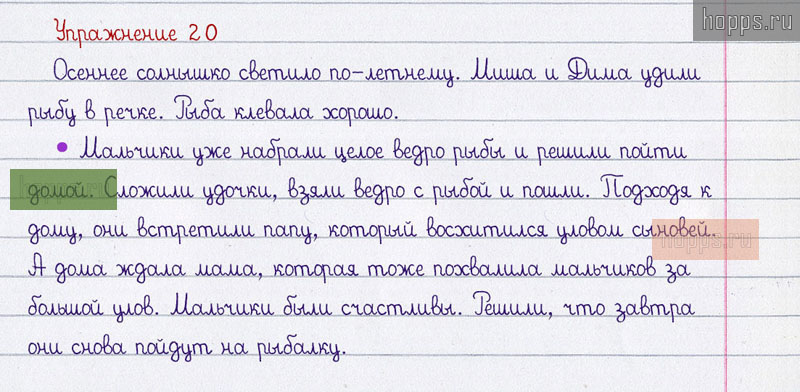 hopps.ru
Упражнение 20
Осеннее солнышко светило по-летнему. Миша и Дима удили
рыбу в речке. Рыба клевала хорошо.
• Мальчики уже набрали целое ведро рыбы и решили пойти
домой. Сложили удочки, взяли ведро с рыбой и пошли. Подходя к
дому, они встретили папу, который восхитился уловом сыновей.
hopps.ru
А дома ждала мама, которая тоже похвалила мальчиков за
большой улов. Мальчики были счастливы. Решили, что завтра
они снова пойдут на рыбалку.